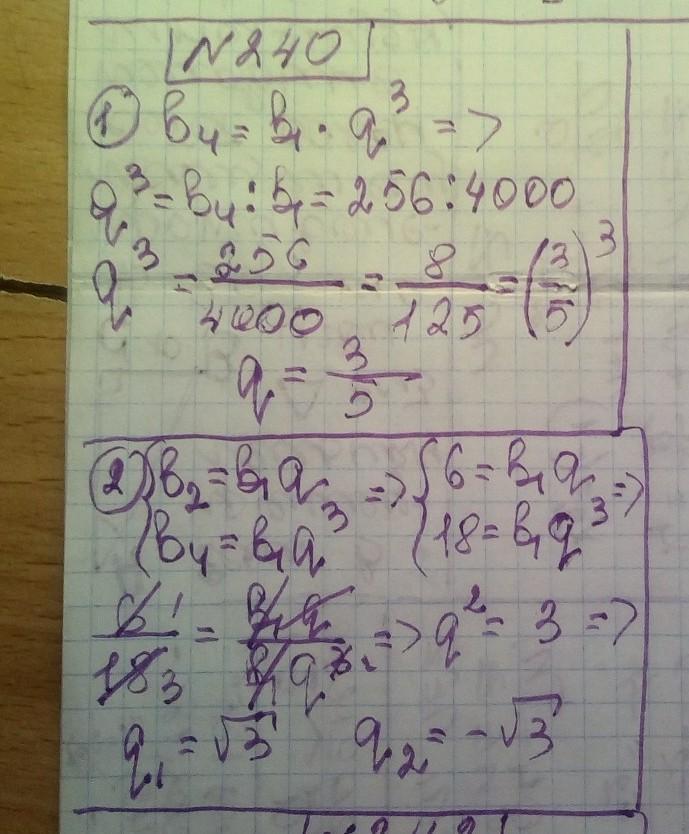 N240
1) b₄ = b₁ · q³ =>
q³ = b₄ : b₁ = 256 : 4000
q³ = 256/4000 = 8/125 = (3/5)³
q = 3/5
2) { b₂ = b₁q => { 6 = b₁q =>
{ b₄ = b₁q³ { 18 = b₁q³
6 1/18 3 = b₁q/b₁q³ ² => q² = 3 =>
q₁ = √3 q₂ = -√3